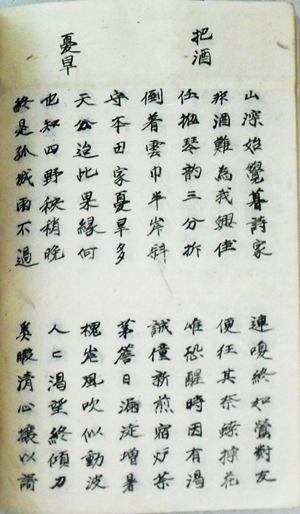 把酒
山深始覺暮詩家
非酒難為我興佳
任抛琴韵三分拆
倒着雲巾半岸斜
連嗄終如鶯對友
便狂其奈蝶探花
唯恐醒時因有渴
誠僮新煎宿炉茶
憂旱
守本田家憂旱多
天公迨此果緣何
也知四野秧稍晚
終是孤城雨不過
茅簷日漏旋增暑
槐岸風吹似動波
人〻渴望終傾刀
奚暇清心以謌